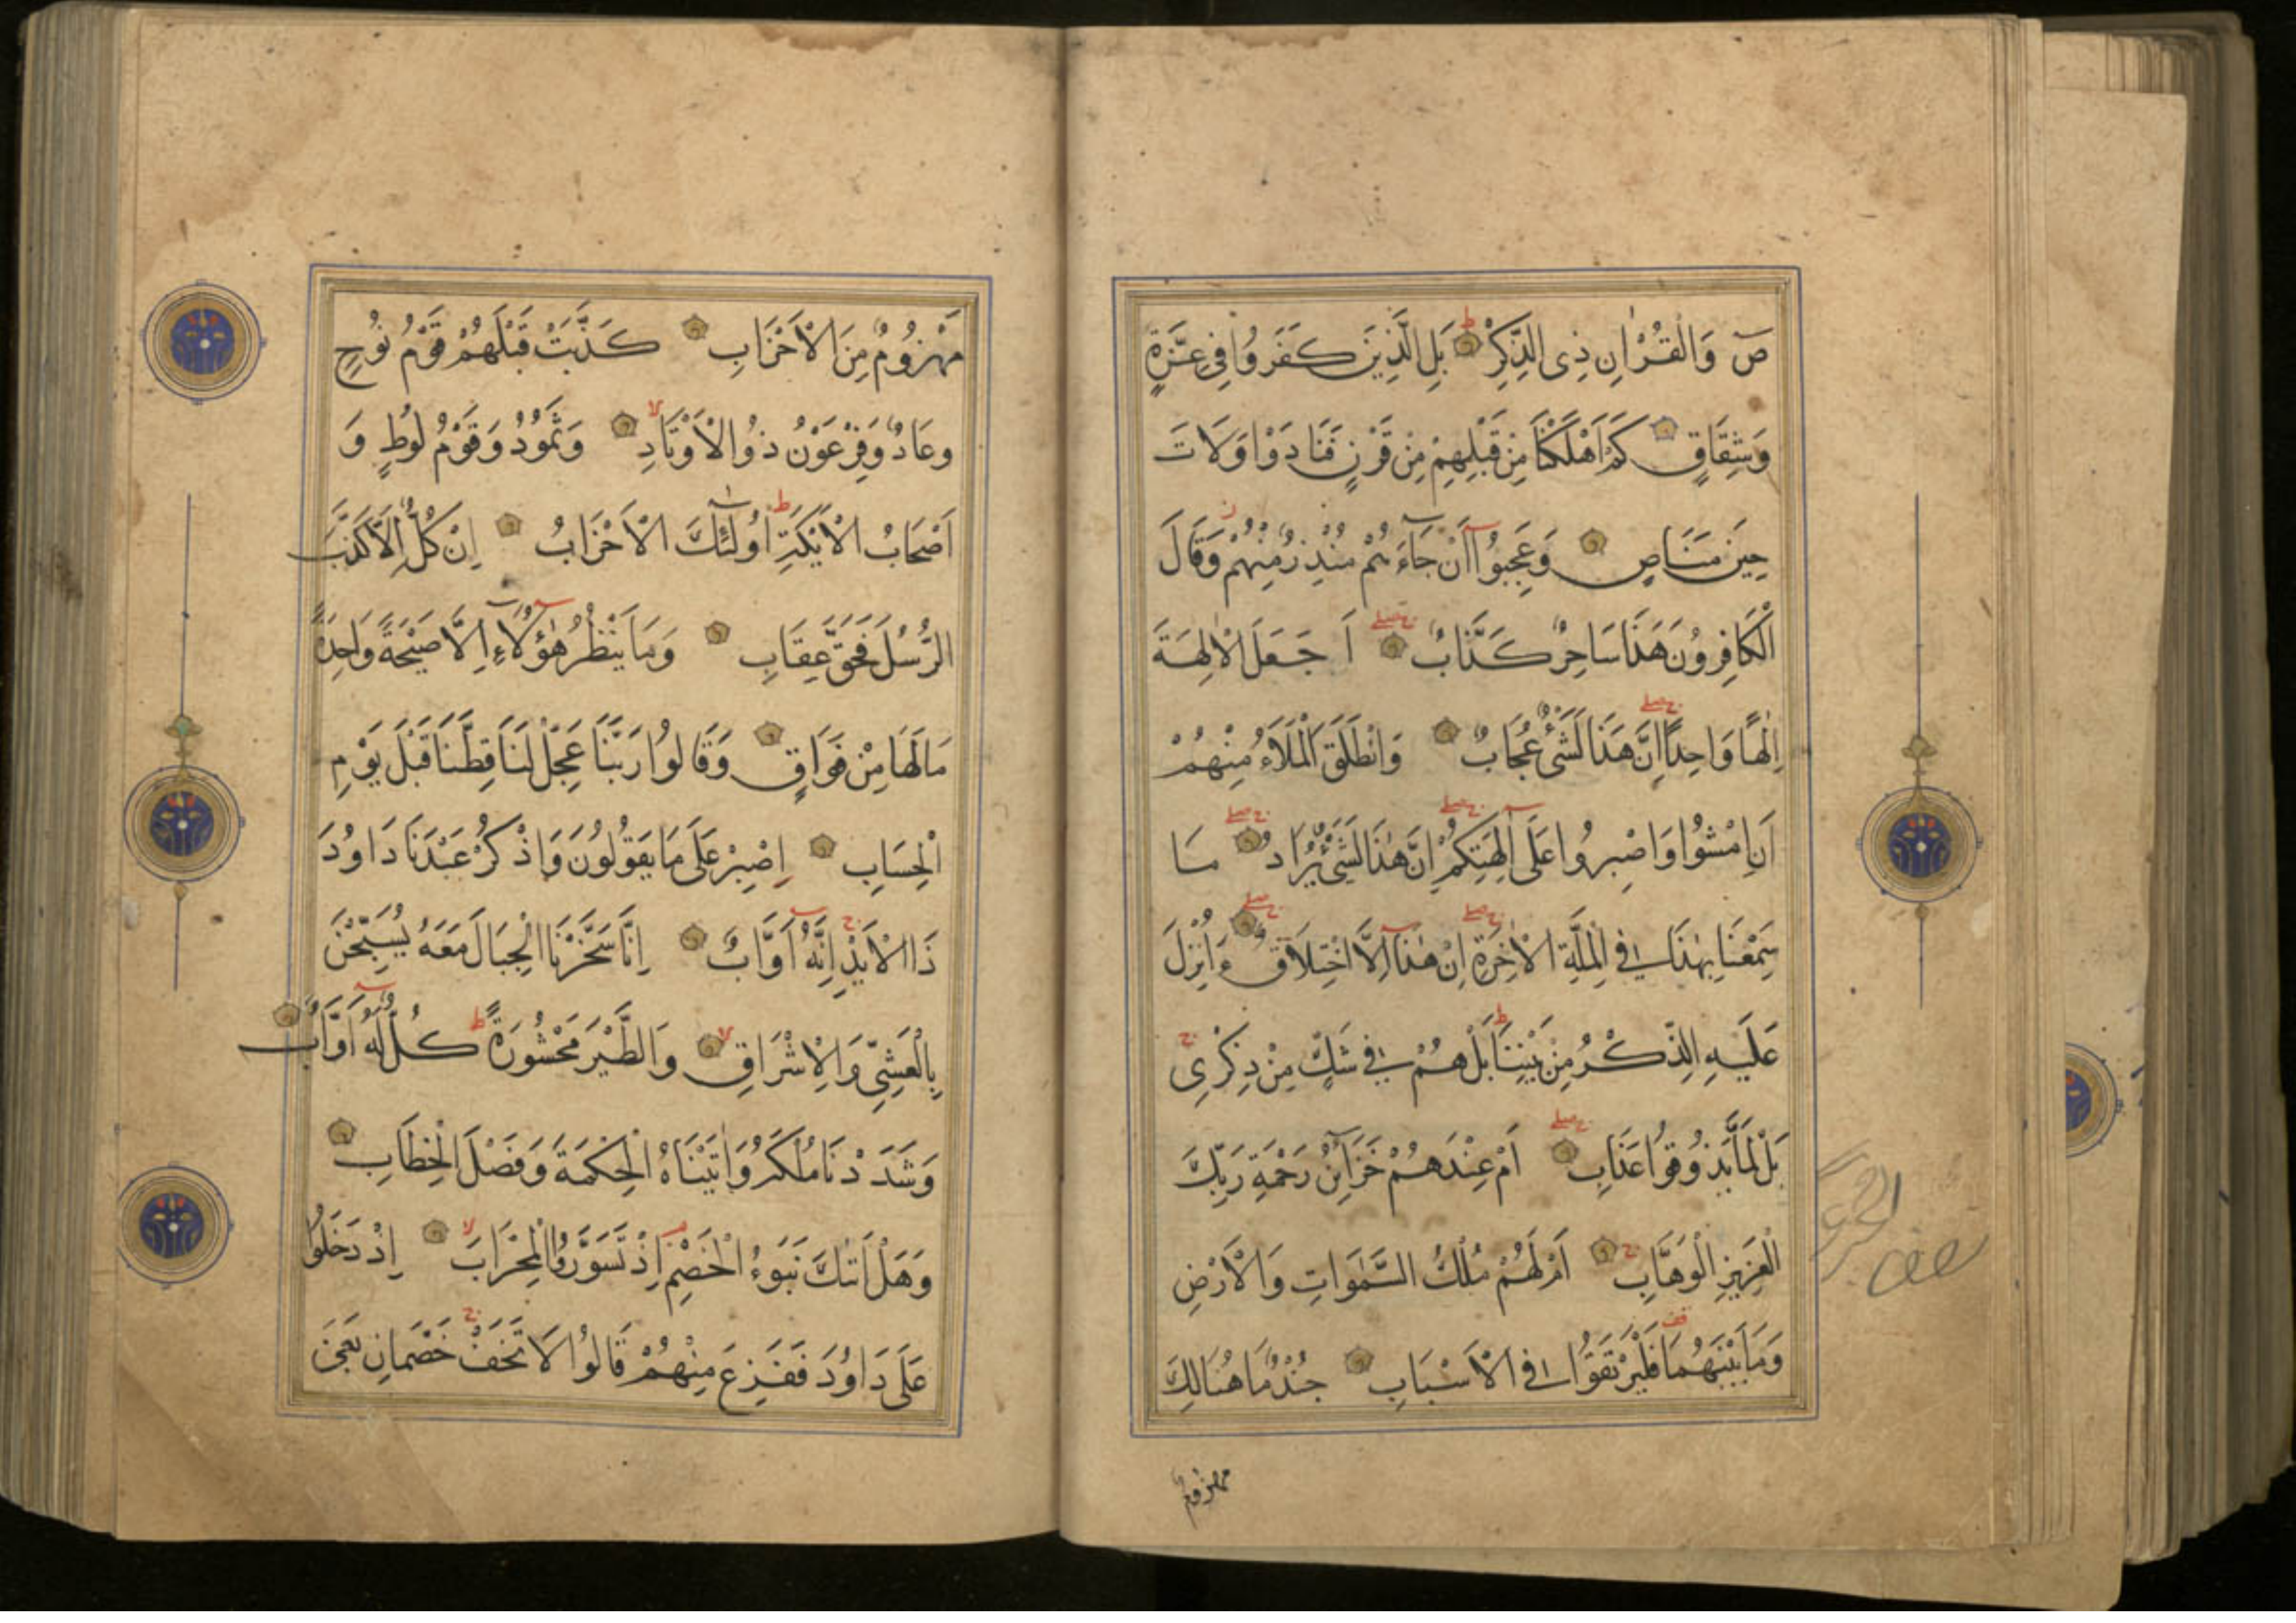 صٓ وَالْقُرْاٰنِ ذِى الذِّكْرِ بَلِ الَّذِينَ كَفَرُوا فِى عِزَّةٍ
وَشِقَاقٍ كَمْ اَهْلَكْنَا مِنْ قَبْلِهِمْ مِنْ قَرْنٍ فَنَادَوْا وَلَاتَ
حِينَ مَنَاصٍ وَعَجِبُوٓا اَنْ جَاءَهُمْ مُنْذِرٌ مِنْهُمْ وَقَالَ
الْكَافِرُونَ هَذَا سَاحِرٌ كَذَّابٌ اَجَعَلَ الْاٰلِهَةَ
اِلٰهًا وَاحِدًا اِنَّ هَذَا لَشَىْءٌ عُجَابٌ وَانْطَلَقَ الْمَلَاُ مِنْهُمْ
اَنِ امْشُوا وَاصْبِرُوا عَلَى اٰلِهَتِكُمْ اِنَّ هٰذَا لَشَىْءٌ يُرَادُ مَا
سَمِعْنَا بِهٰذَا فِى الْمِلَّةِ الْاٰخِرَةِ اِنْ هٰذَا اِلَّا اخْتِلَاقٌ ءَاُنْزِلَ
عَلَيْهِ الذِّكْرُ مِنْ بَيْنِنَا بَلْ هُمْ فِى شَكٍّ مِنْ ذِكْرِى
بَلْ لَمَّا يَذُوقُوا عَذَابِ اَمْ عِنْدَهُمْ خَزَائِنُ رَحْمَةِ رَبِّكَ
الْعَزِيزِ الْوَهَّابِ اَمْ لَهُمْ مُلْكُ السَّمٰوَاتِ وَالْاَرْضِ
وَمَا بَيْنَهُمَا فَلْيَرْتَقُوا فِى الْاَسْبَابِ جُنْدٌ مَا هُنَالِكَ
مهزوم
مَهْزُومٌ مِنَ الْاَحْزَابِ كَذَّبَتْ قَبْلَهُمْ قَوْمُ نُوحٍ
وعَادٌ وَفِرْعَوْنُ ذُو الْاَوْتَادِ وَثَمُودُ وَقَوْمُ لُوطٍ وَ
اَصْحَابُ الْاَيْكَةِ اُولٰئِكَ الْاَحْزَابُ اِنْ كُلٌّ اِلَّا كَذَّبَ
الرُّسُلَ فَحَقَّ عِقَابِ وَمَا يَنْظُرُ هٰؤُلَاءِ اِلَّا صَيْحَةً وَاحِدَةً
مَا لَهَا مِنْ فَوَاقٍ وَقَالُوا رَبَّنَا عَجِّلْ لَنَا قِطَّنَا قَبْلَ يَوْمِ
الْحِسَابِ اِصْبِرْ عَلَى مَا يَقُولُونَ وَاذْكُرْ عَبْدَنَا دَاوُدَ
ذَا الْاَيْدِ اِنَّهُ اَوَّابٌ اِنَّا سَخَّرْنَا الْجِبَالَ مَعَهُ يُسَبِّحْنَ
بِالْعَشِىِّ وَالْاِشْرَاقِ وَالطَّيْرَ مَحْشُورَةً كُلٌّ لَهُ اَوَّابٌ
وَشَدَدْنَا مُلْكَهُ وَاٰتَيْنَاهُ الْحِكْمَةَ وَفَصْلَ الْخِطَابِ
وَهَلْ اَتٰىكَ نَبَؤُا الْخَصْمِ اِذْ تَسَوَّرُوا الْمِحْرَابَ اِذْ دَخَلُوا
عَلَى دَاوُدَ فَفَزِعَ مِنْهُمْ قَالُوا لَا تَخَفْ خَصْمَانِ بَغَى